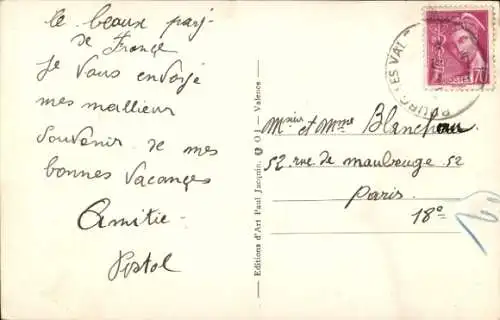 le beaux pays
de France
Je vous envoye
mes mallieur
souvenir de mes
bonnes vacances
Amitie
Pistol
Editions d'Art Paul Jacquin, Valence
BOURG-LES-VAL
POSTES
70
Msieur et Mme Blancheau
52 rue de maubeuge 52
Paris
18e